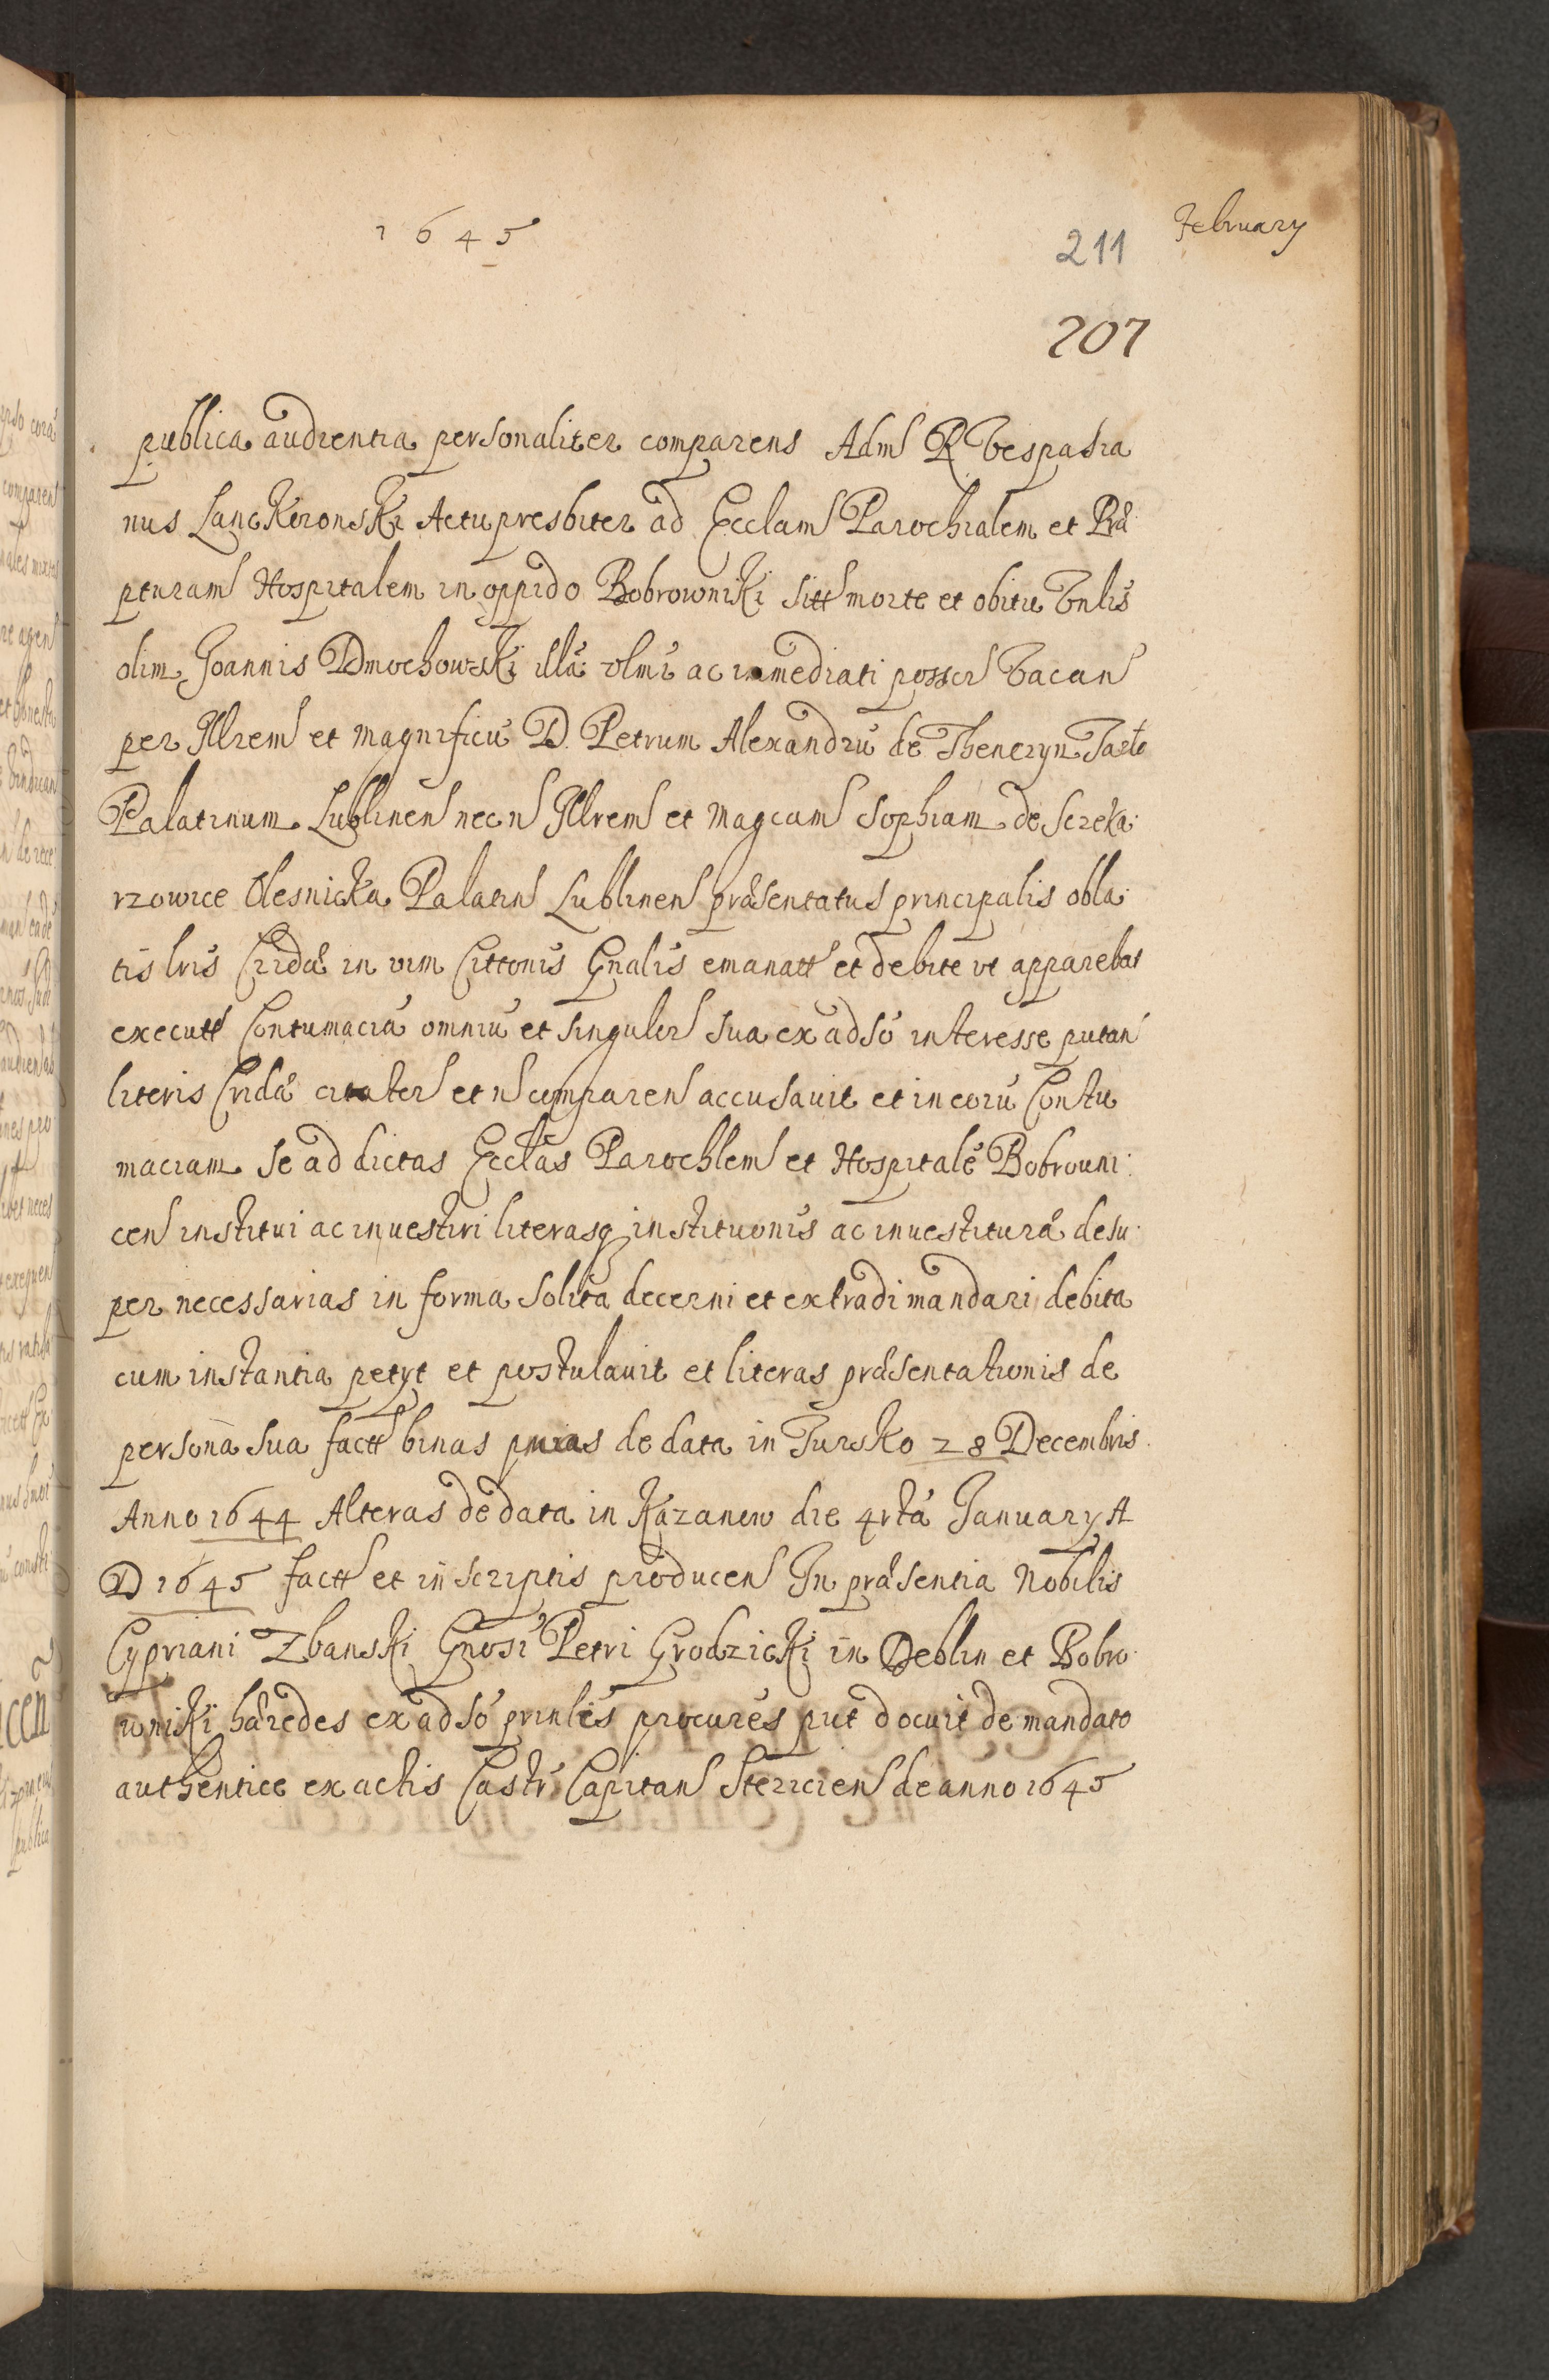 1645
211
February
207
publica audientia personaliter comparens Adm R Vespasia
nus Lanckoronski Actu presbiter ad Ecclam Parochialem et Præ
pturam Hospitalem in oppido Bobrowniki sitt morte et obitu Vnlis
olim Joannis Dmochowski illa vlmi ac immediati posser Vacan
per Illrem et Magnificu D. Petrum Alexandru de Thenczyn Tarło
Palatinum Lublinen necn Illrem et Magcam Sophiam de Screka
rzowice Olesnicka Palatin Lublinen præsentatus principalis obla
tis lris Cridæ in vim Cittonis Gnalis emanatt et debite vt apparebat
executt Contumacia omniu et singulor sua ex adso interesse putan
literis Cridæ citator et n comparen accusauit et in eoru Contu
maciam se ad dictas Ecclas Parochlem et Hospitale Bobrowni
cen institui ac inuestiri literasq institionis ac inuestituræ desu
per necessarias in forma solita decerni et extradi mandari debita
cum instantia petyt et postulauit et literas præsentationis de
persona sua factt binas de data in Tursko 28 Decembris
Anno 1644 Alteras de data in Kazanow die 4rta January A
D 1645 factt et in scriptis producen In præsentia Nobilis
Cypriani Zbanski Gnosi Petri Grodzicki in Deblin et Bobro
wniki hæredes ex adso prinles procures put docuit de mandato
authentice ex actis Castr Capitan Stezicien de anno 1645